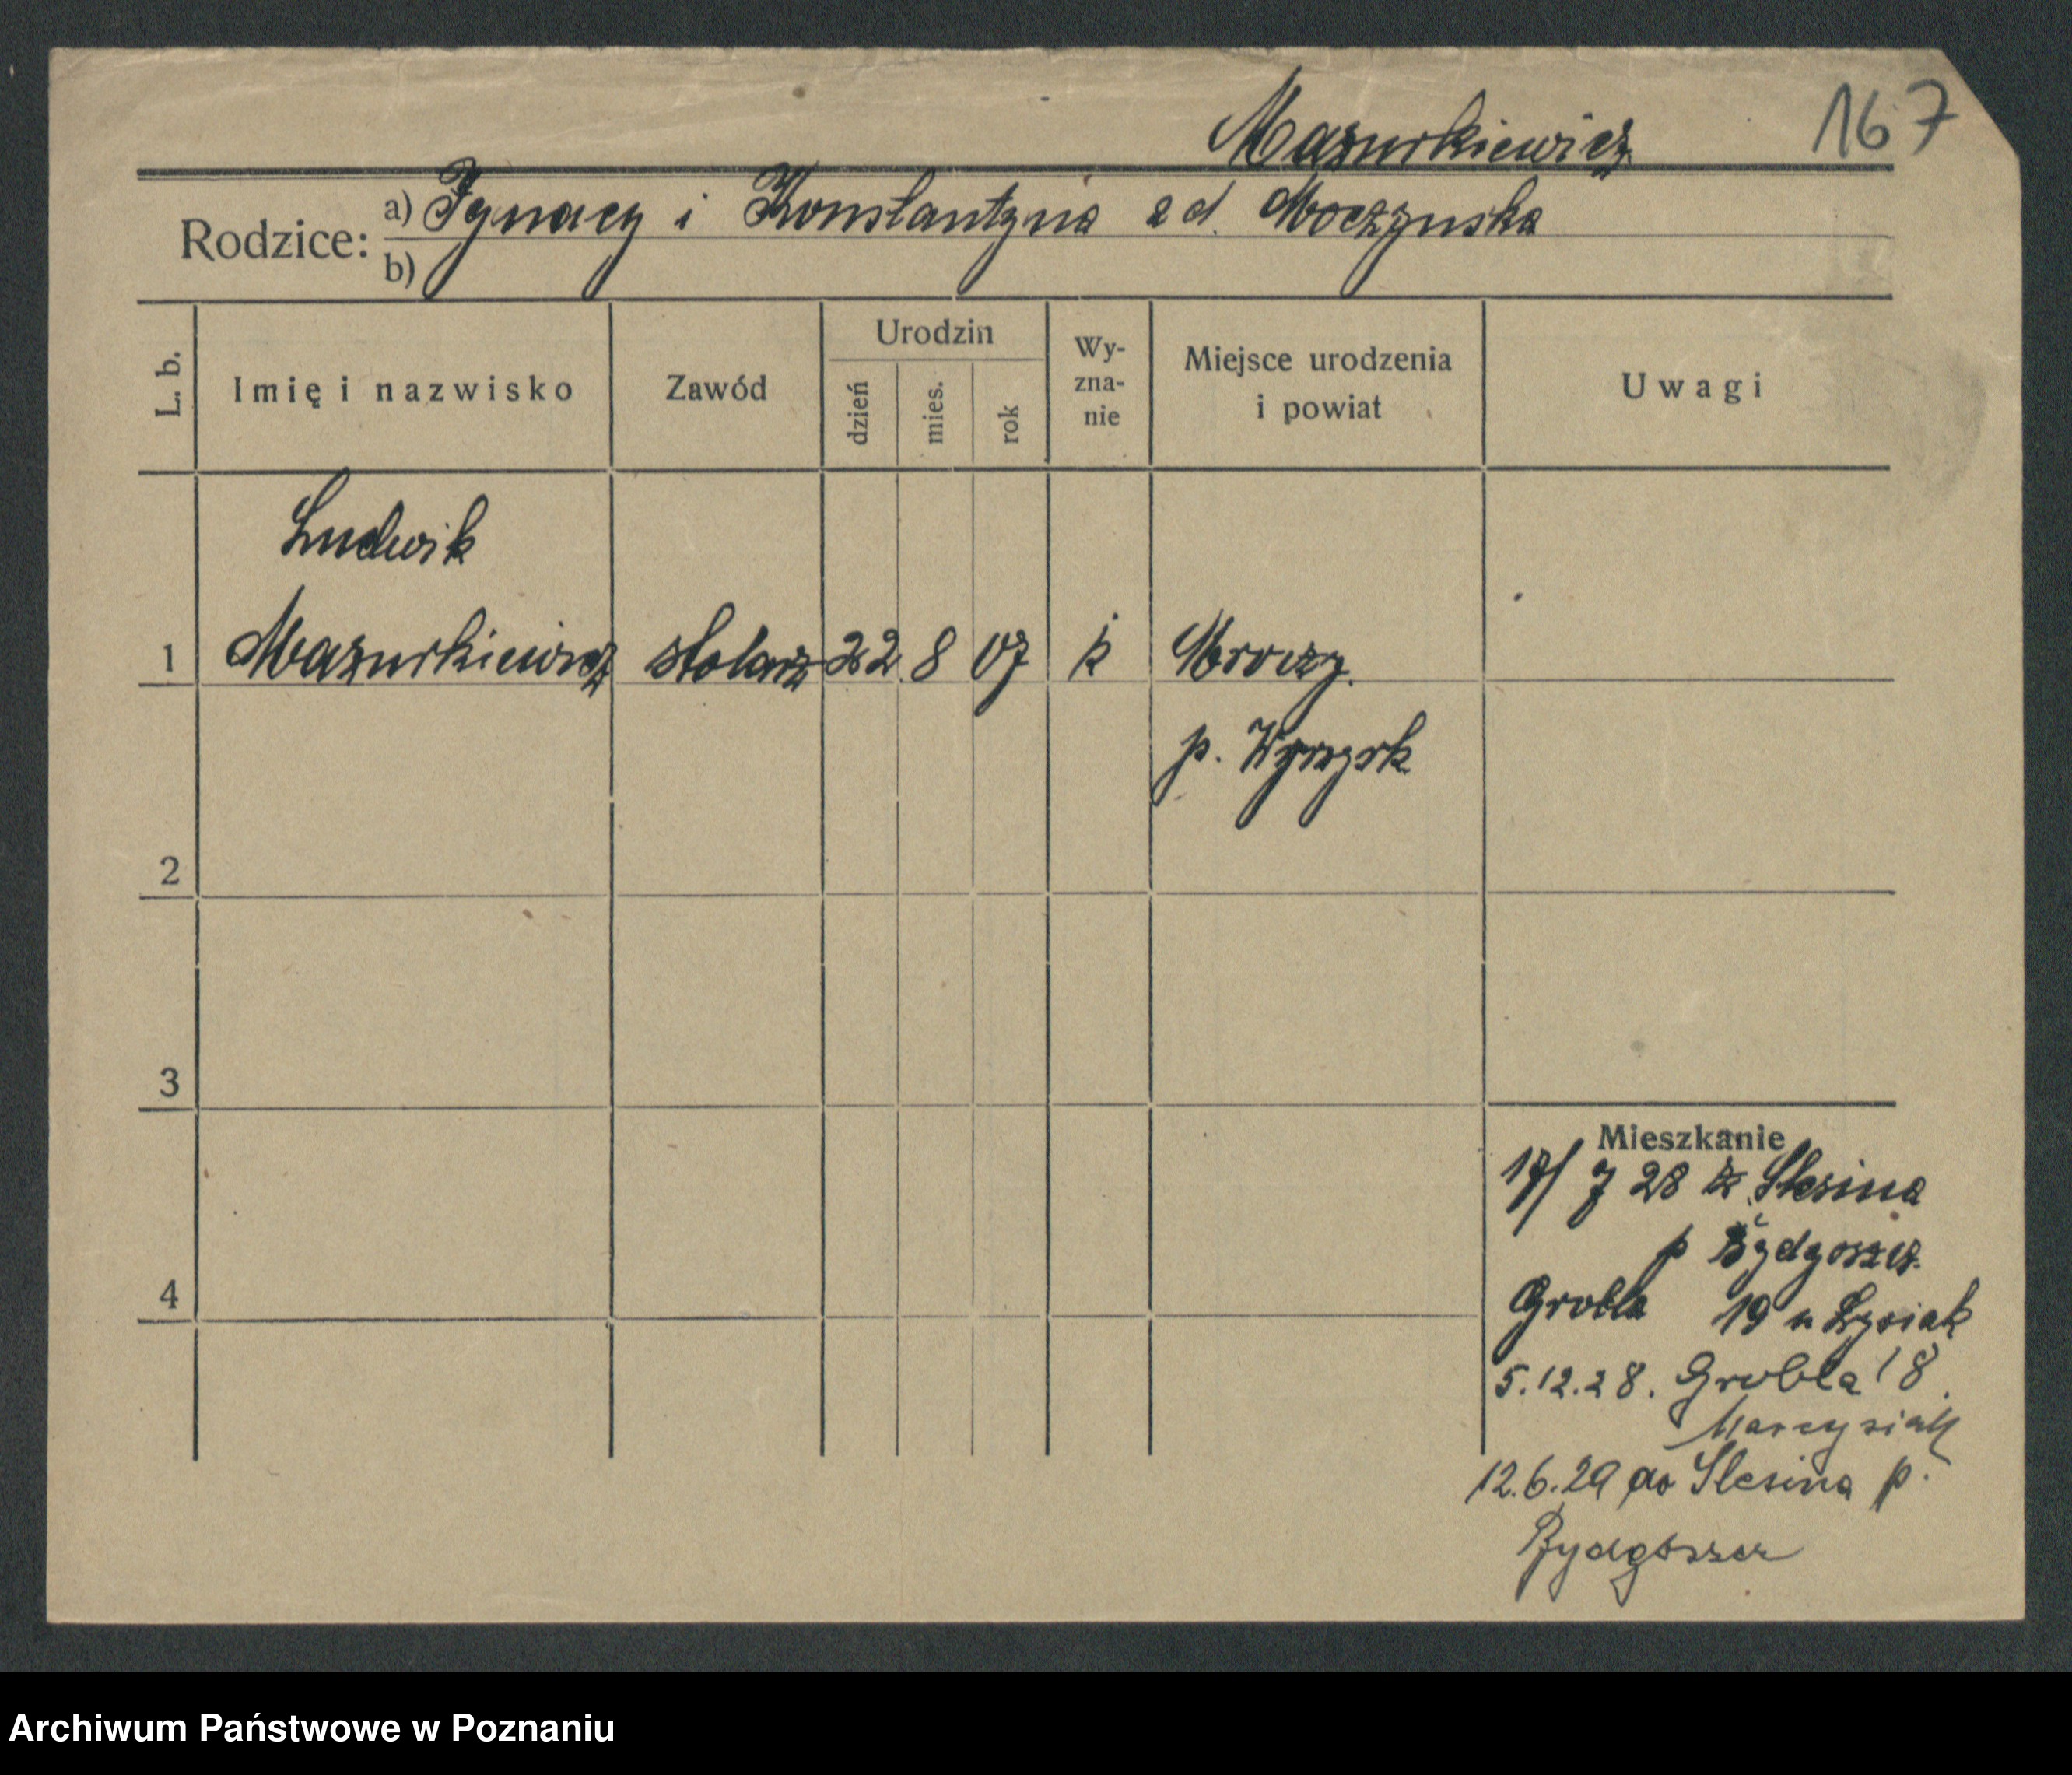 167
Mazurkiewicz
Rodzice: a) Ignacy i Konstantyna z d. Moczyńska
b)
L. b.
Imię i nazwisko
Zawód
Urodzin
dzień
mies.
rok
Wy-
zna-
nie
Miejsce urodzenia
i powiat
Uwagi
Ludwik
1 Mazurkiewicz stolarz 22 8 07 k Mroczy.
p. Wyrzysk
2
3
4
Mieszkanie
17/7 28 z Slesina
p Bydgoszcz.
Grobla 19 u Łysiak
5.12.28. Grobla 18.
Marcysiak
12.6.29 do Slesina p.
Bydgoszcz
Archiwum Państwowe w Poznaniu